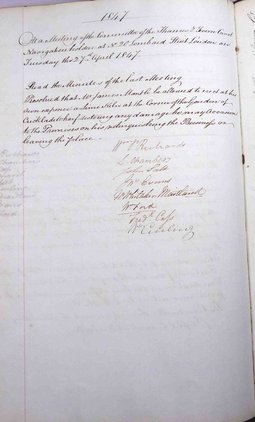 1847
At a Meeting of the Committee of the Thames & Severn Canal
Navigation holden at No 20 Lombard Street London on
Tuesday the 27th April 1847
Read the Minutes of the last Meeting
Resolved that Mr James Mantle be allowed to erect at his
own expence a Lime Kiln at the Corner of the Garden of
Cricklade Wharf restoring any damage he may occasion
to the Premises on his relinquishing the Business or
leaving the place
Wm Richards
L. Chambers
John
Wm Evans
W Whitaker Maitland
W
Fredk Cass
Wm